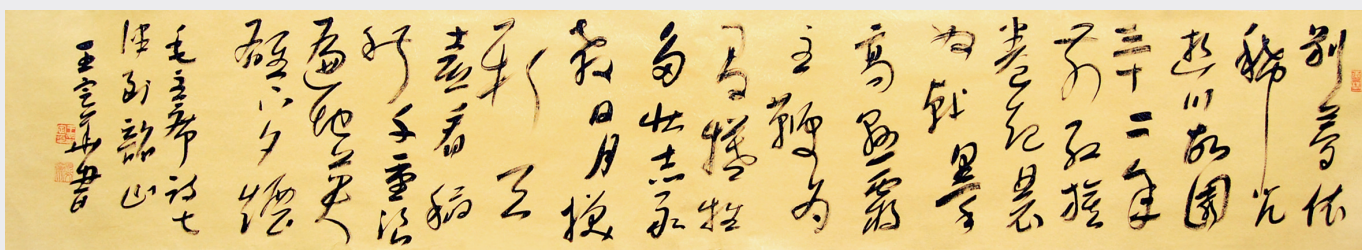 别夢依
稀咒
逝川故園
三十二年
前紅旗
卷起農
奴戟黑手
高懸霸
主鞭為
有犧牲
多壯志敢
教日月換
新天
喜看稻
菽千重浪
遍地英
雄下夕煙
毛主席詩七
律到韶山
王書